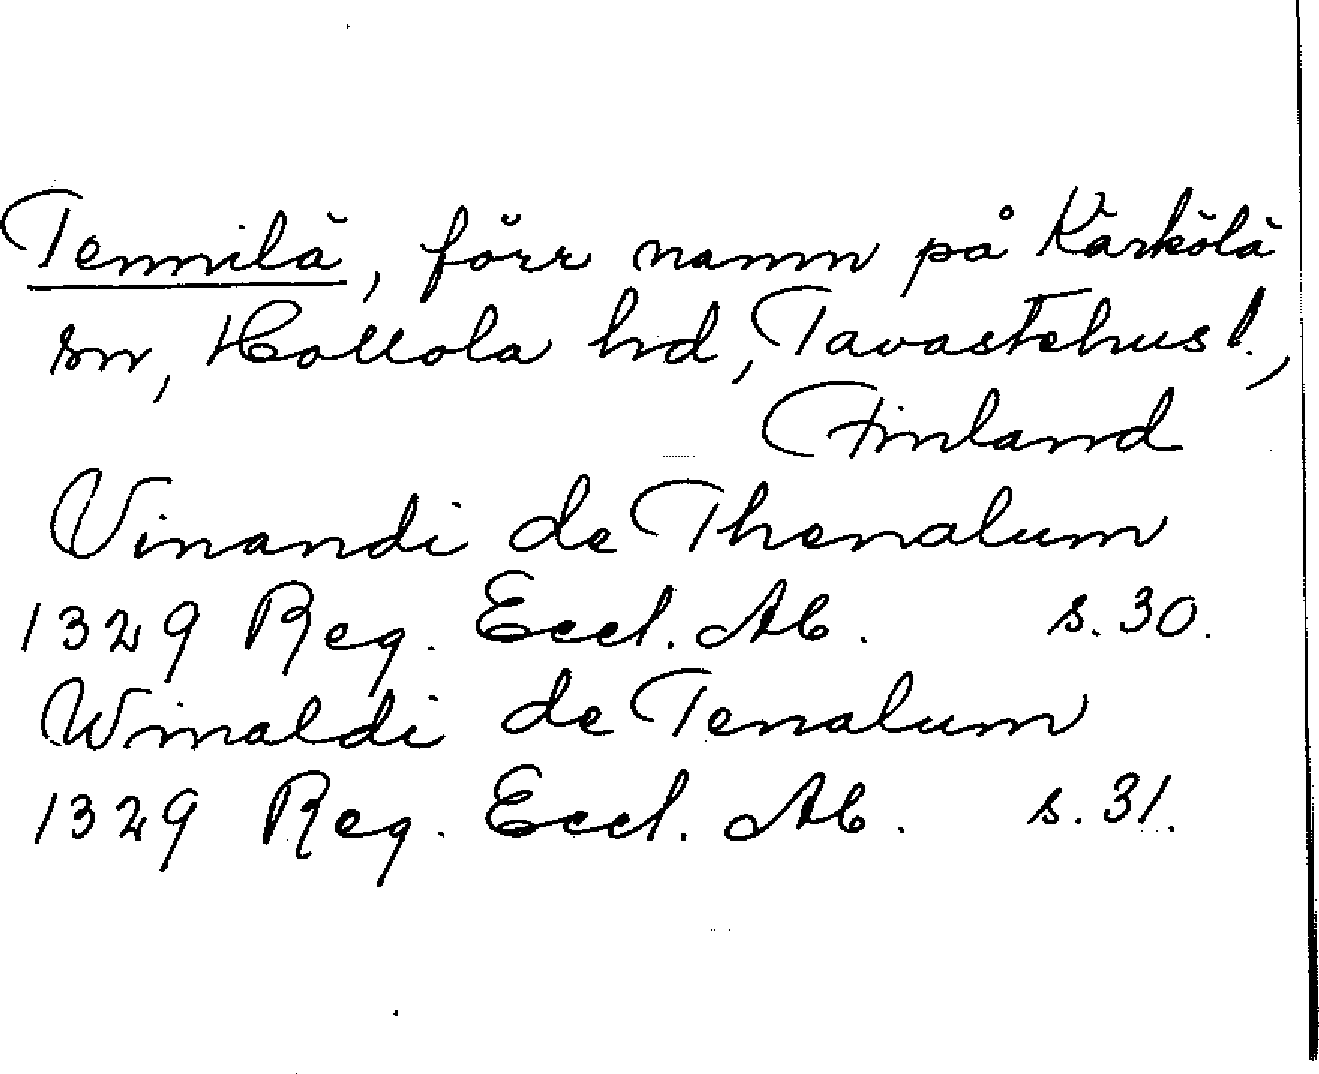 Tennilä, förr namn på Kärkölä
sn, Hollola hd, Tavastehus l.,
Finland
Vinandi de Thenalum
1329 Reg. Eccl. Ab. s. 30.
Winaldi de Tenalum
1329 Reg. Eccl. Ab. s. 31.